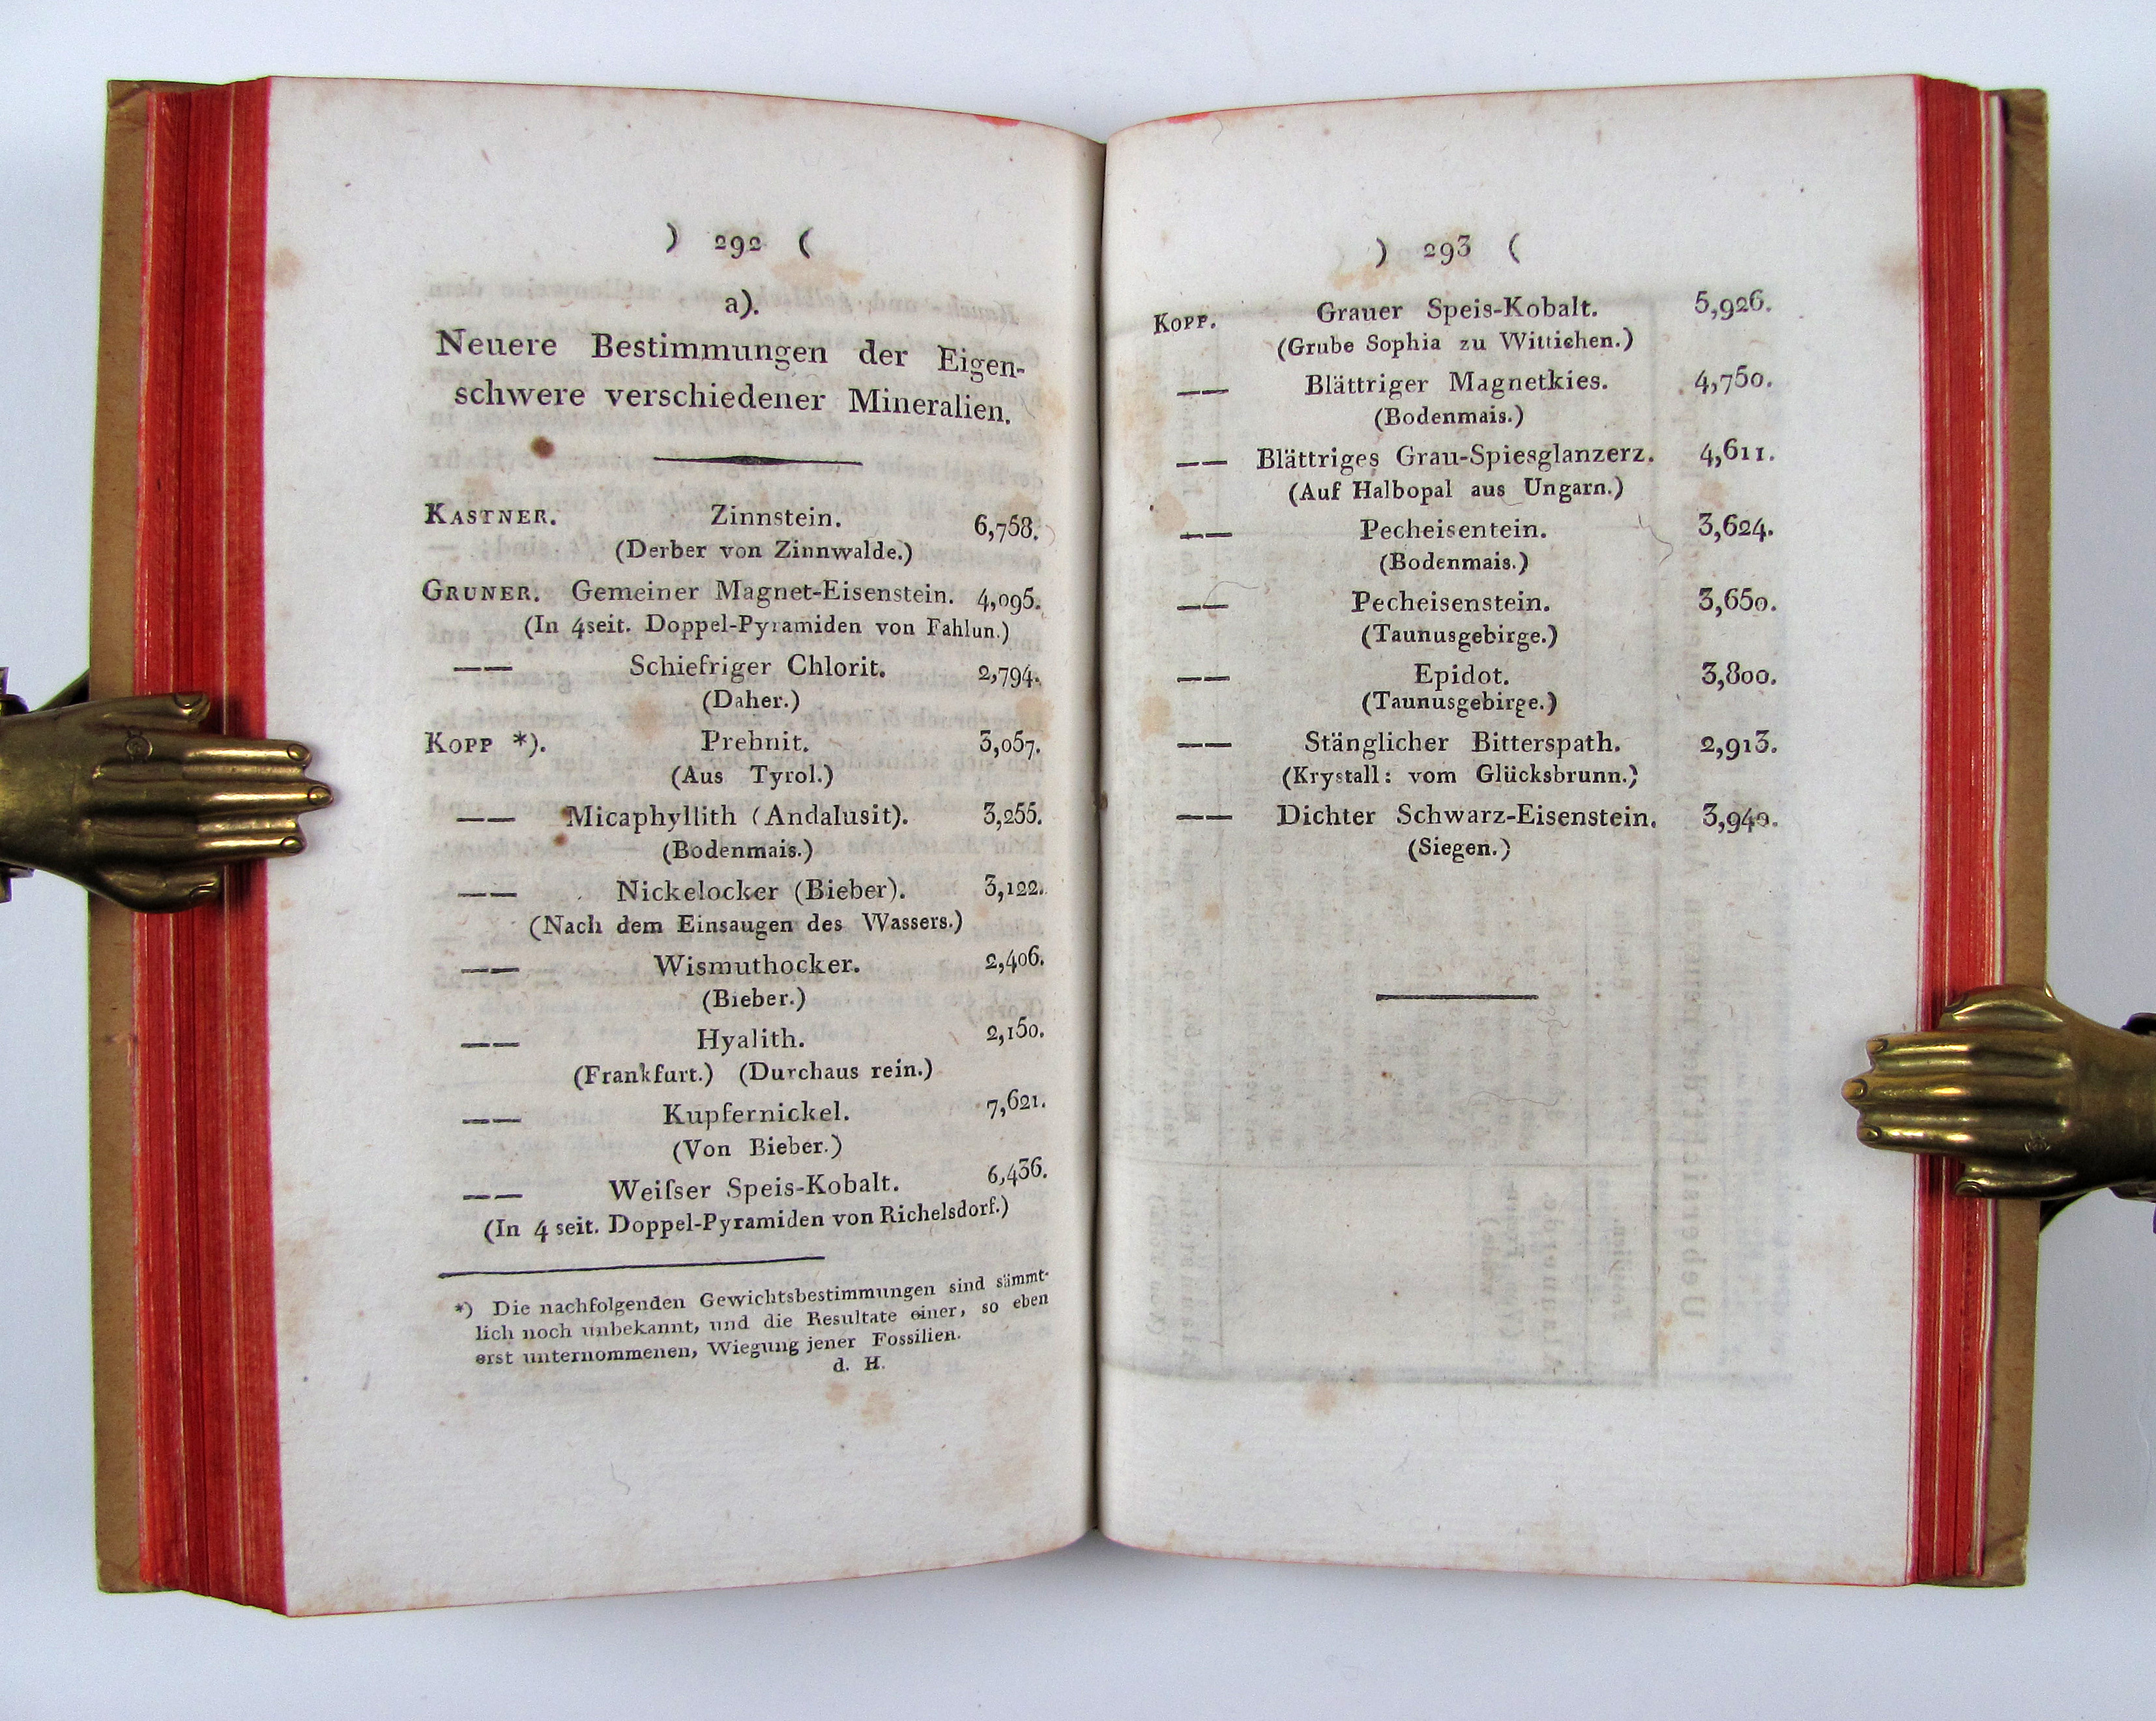 ) 292 (
a).
Neuere Bestimmungen der Eigen-
schwere verschiedener Mineralien.
KASTNER. Zinnstein. 6,758.
(Derber von Zinnwalde.)
GRUNER. Gemeiner Magnet-Eisenstein. 4,095.
(In 4seit. Doppel-Pyramiden von Fahlun.)
—— Schiefriger Chlorit. 2,794.
(Daher.)
KOPP *). Prehnit. 3,057.
(Aus Tyrol.)
—— Micaphyllith (Andalusit). 3,255.
(Bodenmais.)
—— Nickelocker (Bieber). 3,122.
(Nach dem Einsaugen des Wassers.)
—— Wismuthocker. 2,406.
(Bieber.)
—— Hyalith. 2,150.
(Frankfurt.) (Durchaus rein.)
—— Kupfernickel. 7,621.
(Von Bieber.)
—— Weiſser Speis-Kobalt. 6,436.
(In 4 seit. Doppel-Pyramiden von Richelsdorf.)
*) Die nachfolgenden Gewichtsbestimmungen sind sämmt-
lich noch unbekannt, und die Resultate einer, so eben
erst unternommenen, Wiegung jener Fossilien.
d. H.
) 293 (
KOPP. Grauer Speis-Kobalt. 5,926.
(Grube Sophia zu Wittichen.)
—— Blättriger Magnetkies. 4,750.
(Bodenmais.)
—— Blättriges Grau-Spiesglanzerz. 4,611.
(Auf Halbopal aus Ungarn.)
—— Pecheisentein. 3,624.
(Bodenmais.)
—— Pecheisenstein. 3,650.
(Taunusgebirge.)
—— Epidot. 3,800.
(Taunusgebirge.)
—— Stänglicher Bitterspath. 2,913.
(Krystall: vom Glücksbrunn.)
—— Dichter Schwarz-Eisenstein. 3,940.
(Siegen.)